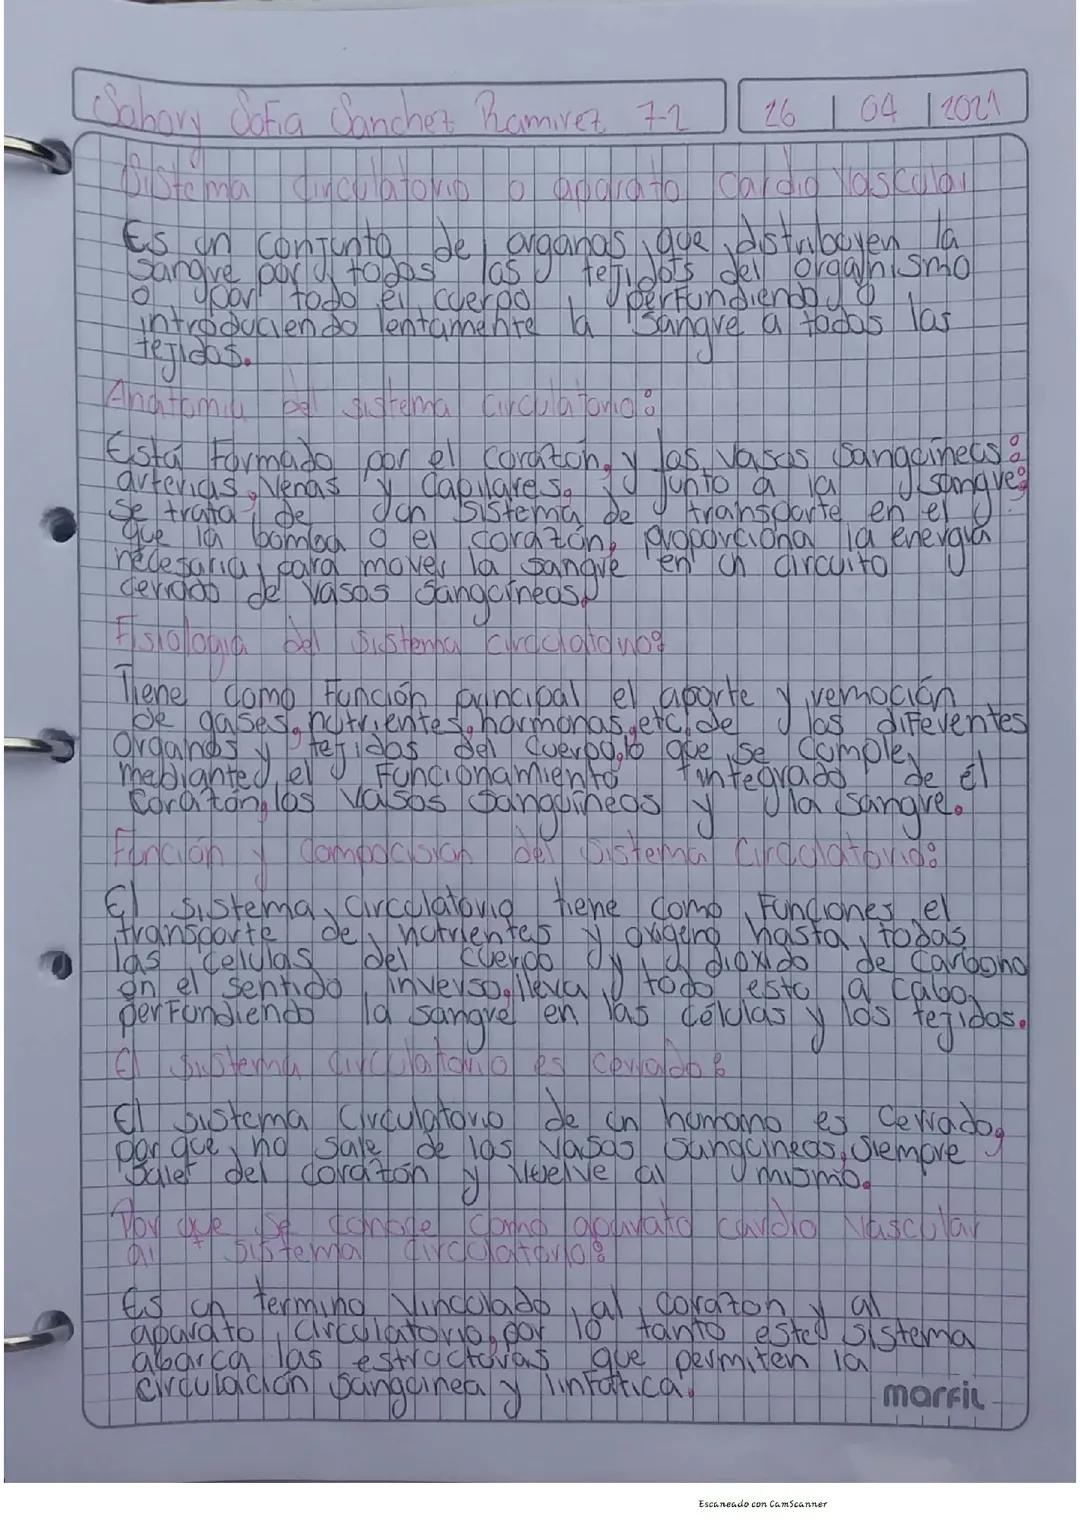 Sahory Sofia Sanchez Ramirez 7-2 26 | 04 | 2021
Sistema circulatorio o aparato cardio vascular
Es un conjunto de organos que distribuyen la
sangre por todos los tejidots del organismo
o por todo el cuerpo, perfundiendo o
introduciendo lentamente la sangre a todos los
tejidos.
Anatomia del sistema circulatorio:
Está formado por el corazón, y los vasos sanguineos:
arterias, venas y capilares. y junto a la sangre:
se trata de un sistema de transporte en el
que la bomba o el corazón, proporciona la energia
necesaria para mover la sangre en un circuito
cerrado de vasos sanguineos.
Fisiologia del sistema circulatorio:
Tiene como función principal el aporte y remoción
de gases, nutrientes, hormonas, etc, de los diferentes
organos y tejidos del cuerpo, lo que se cumple,
mediante el funcionamiento integrado de él
corazón, los vasos sanguíneos y la sangre.
Función y composision del sistema circulatorio:
El sistema circulatorio tiene como funciones el
transporte de nutrientes y oxigeno hasta todas
las celulas del cuerpo y dioxido de carbono
en el sentido inverso, lleva todo esto a cabo,
perfundiendo la sangre en las células y los tejidos.
El sistema circulatorio es cerrado:
El sistema circulatorio de un humano es cerrado,
por que no sale de los vasos sanguineos, siempre
salet del corazón y vuelve al mismo.
Por que se conoce como aparato cardio vascular
al sistema circulatorio:
Es un termino vinculado al corazon y al
aparato circulatorio, por lo tanto este sistema
abarca las estructuras que permiten la
circulación sanguinea y linfatica.
marfil
Escaneado con CamScanner